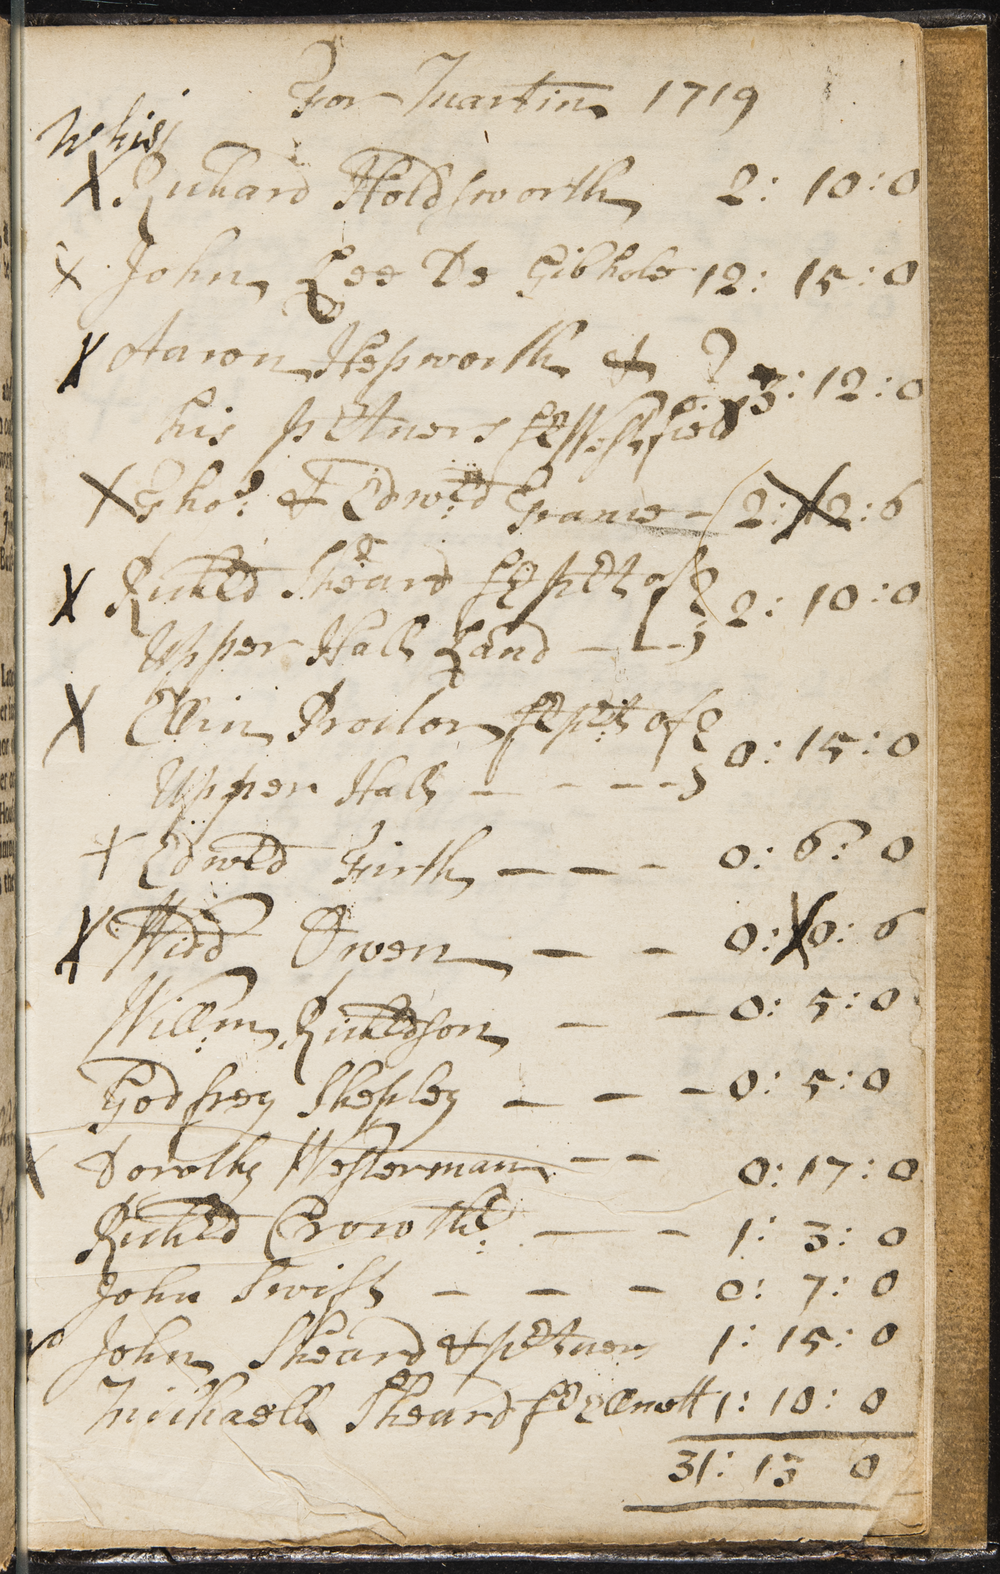 For Martin 1719
Whis
X Richard Holdsworth 2: 10: 0
X John Lee De Gibhole 12: 15: 0
X Aaron Hepworth &
his ptners Westfield 3: 12: 0
X Tho: & Edwrd Grame - 2: 12: 6
X Richrd Sheard pt of
Upper Hall Land - - - 2: 10: 0
X Ellin Procter pt of
Upper Hall - - - - 0: 15: 0
X Edwrd Firth - - - 0: 6: 0
X Widd Owen - - 0: 10: 6
Willm Richrdson - - 0: 5: 0
Godfrey Shepley - - - 0: 5: 0
X Dorothy Westerman - - 0: 17: 0
Richrd Crowthr - - 1: 3: 0
John Swift - - - 0: 7: 0
X John Sheard & ptners 1: 15: 0
Michaell Sheard 1: 10: 0
31: 13 0